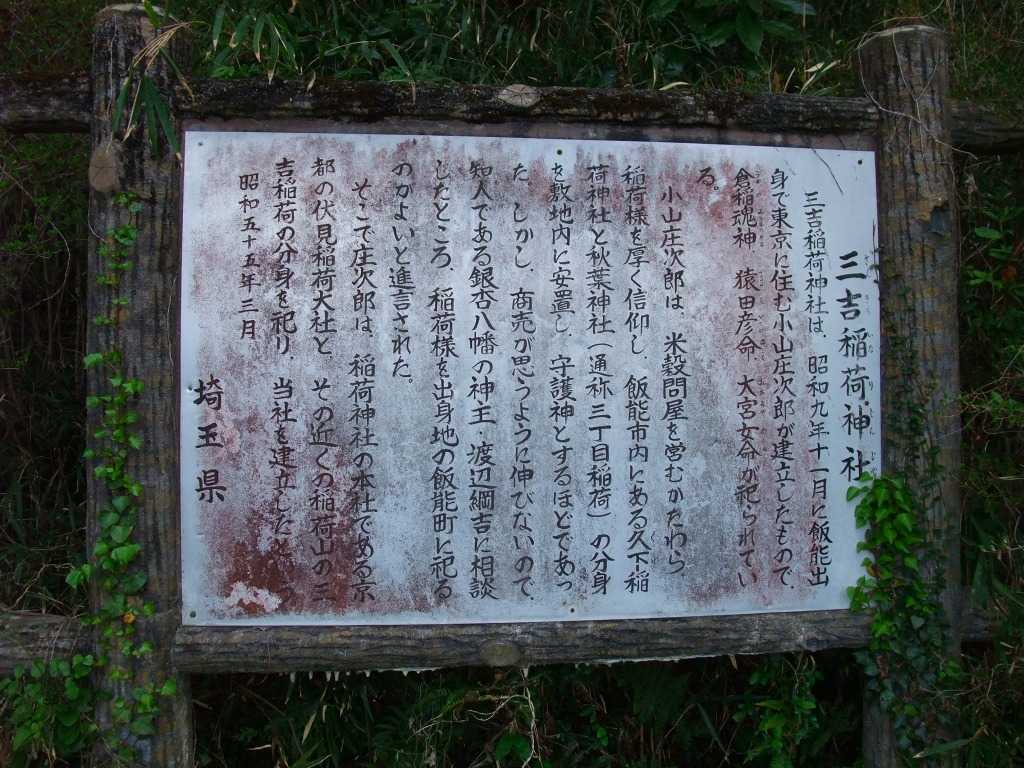 三吉稲荷神社
三吉稲荷神社は、昭和九年十一月に飯能出
身で東京に住む小山庄次郎が建立したもので、
倉稲魂神、猿田彦命、大宮女命が祀られてい
る。
小山庄次郎は、米穀問屋を営むかたわら
稲荷様を厚く信仰し、飯能市内にある久下稲
荷神社と秋葉神社(通称三丁目稲荷)の分身
を敷地内に安置し、守護神とするほどであっ
た。しかし、商売が思うように伸びないので、
知人である銀杏八幡の神王・渡辺綱吉に相談
したところ、稲荷様を出身地の飯能町に祀る
のがよいと進言された。
そこで庄次郎は、稲荷神社の本社である京
都の伏見稲荷大社と、その近くの稲荷山の三
吉稲荷の分身を祀り、当社を建立した
昭和五十五年三月
埼玉県